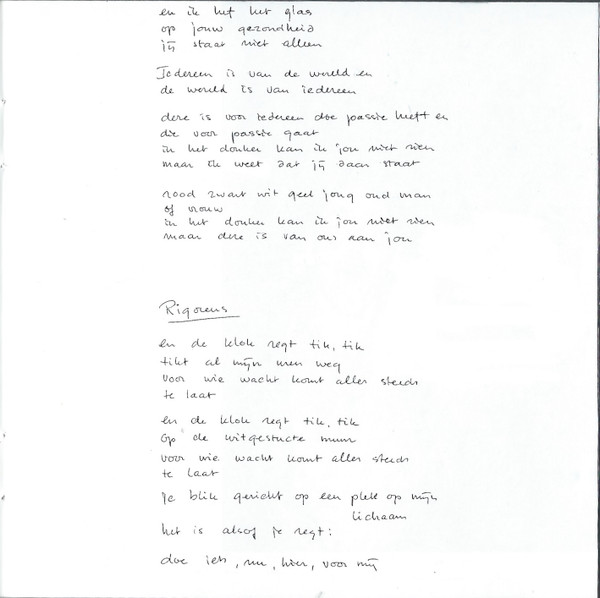 en ik hef het glas
op jouw gezondheid
jij staat niet alleen
Iedereen is van de wereld en
de wereld is van iedereen
deze is voor iedereen die passie heeft en
die voor passie gaat
in het donker kan ik jou niet zien
maar ik weet dat jij daar staat
rood zwart wit geel jong oud man
of vrouw
in het donker kan ik jou niet zien
maar deze is van ons aan jou
Rigoreus
en de klok zegt tik, tik
tikt al mijn uren weg
voor wie wacht komt alles steeds
te laat
en de klok zegt tik, tik
op de witgestucte muur
voor wie wacht komt alles steeds
te laat
je blik gericht op een plek op mijn
lichaam
het is alsof je zegt:
doe iets, nu, hier, voor mij